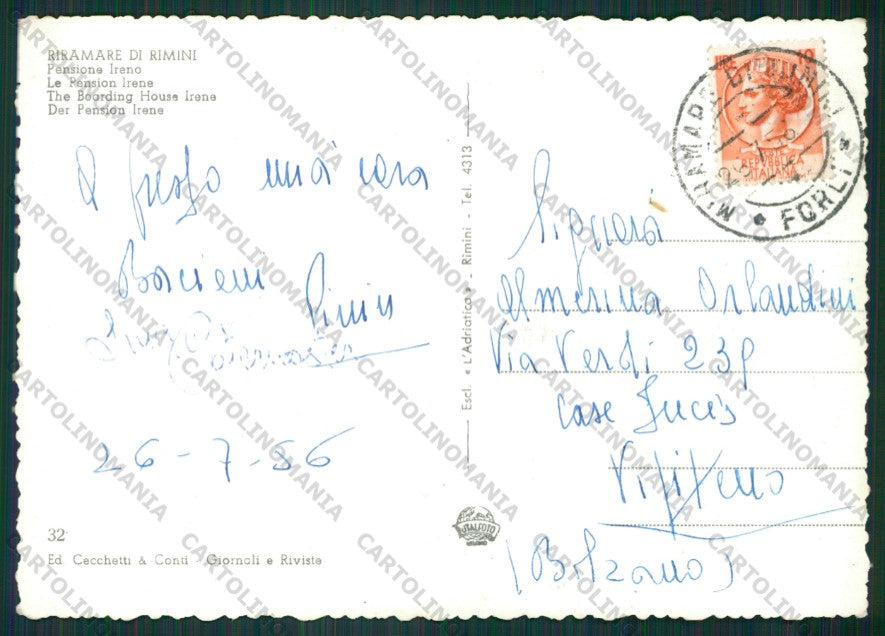 RIRAMARE DI RIMINI
Pensione Irene
Le Pension Irene
The Boarding House Irene
Der Pension Irene
A presto mia cara
Bacioni
26-7-56
32
Ed. Cecchetti & Conti - Giornali e Riviste
Escl. « L'Adriatica » - Rimini - Tel. 4313
ITALFOTO
REPUBBLICA
ITALIANA
MIRAMARE DI RIMINI * FORLI *
Signora
Almerina Orlandini
Via Verdi 239
Case
Vipiteno
(Bolzano)
CARTOLINOMANIA